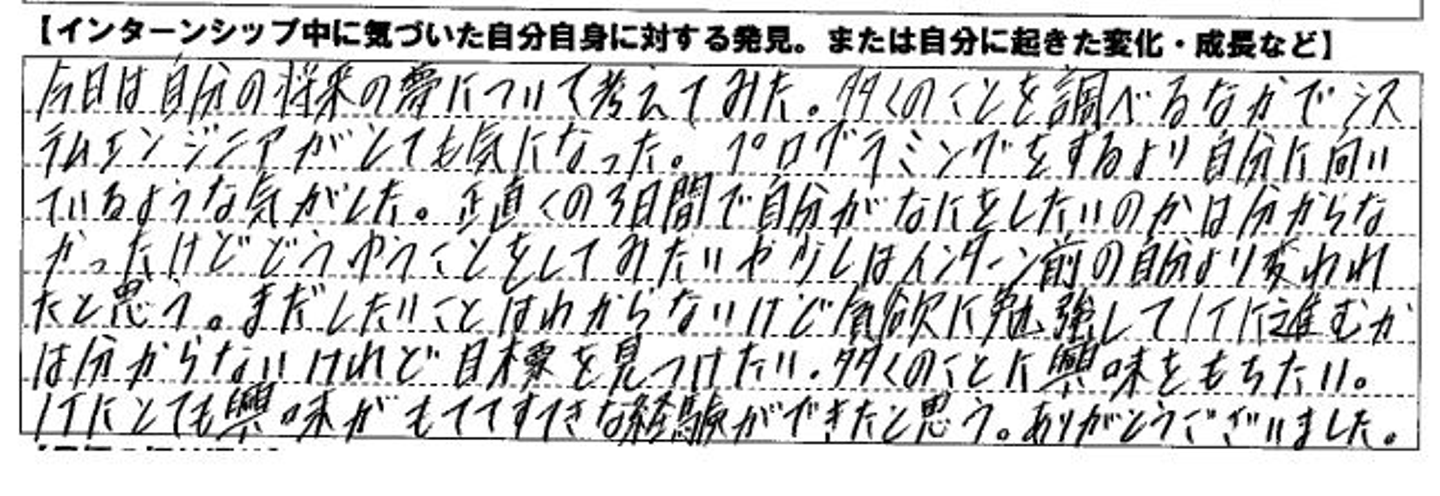 【インターンシップ中に気づいた自分自身に対する発見。または自分に起きた変化・成長など】
今日は自分の将来の夢について考えてみた。多くのことを調べるなかでシス
テムエンジニアがとても気になった。プログラミングをするより自分に向い
ているような気がした。正直くの3日間で自分がなにをしたいのかは分からな
かったけどどうゆうことをしてみたいや少しはインターン前の自分より変われ
たと思う。まだしたいことはわからないけど貪欲に勉強してITに進むか
は分からないけれど目標を見つけたい。多くのことに興味をもちたい。
ITにとても興味がもててすてきな経験ができたと思う。ありがとうございました。